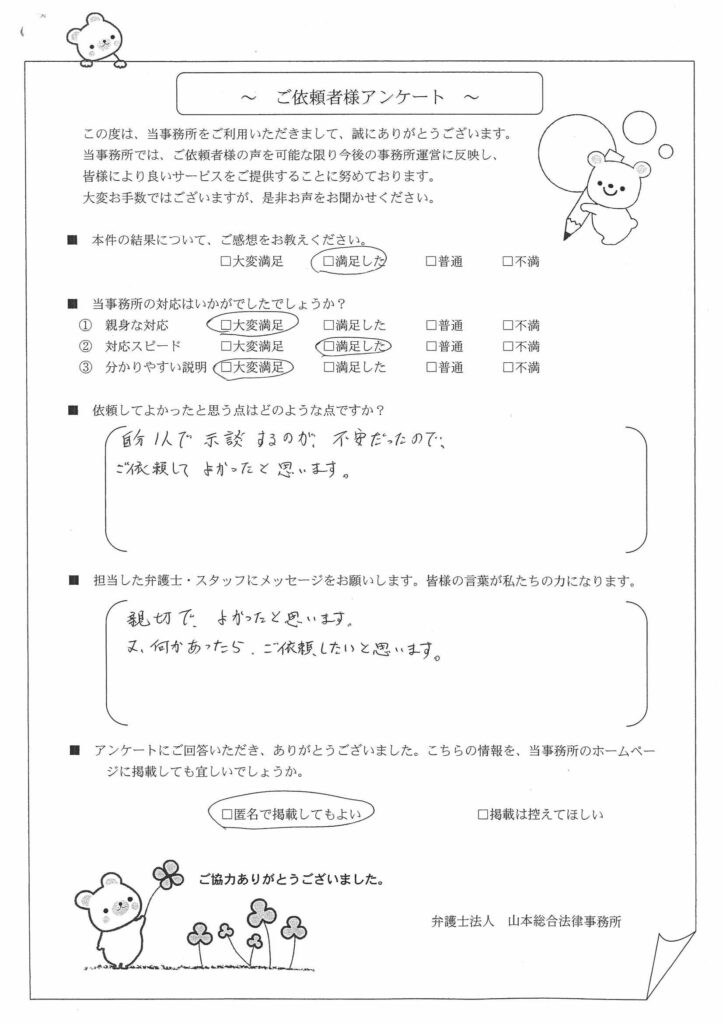 ～ ご依頼者様アンケート ～
この度は、当事務所をご利用いただきまして、誠にありがとうございます。
当事務所では、ご依頼者様の声を可能な限り今後の事務所運営に反映し、
皆様により良いサービスをご提供することに努めております。
大変お手数ではございますが、是非お声をお聞かせください。
■ 本件の結果について、ご感想をお教えください。
□大変満足 □満足した □普通 □不満
■ 当事務所の対応はいかがでしたでしょうか？
① 親身な対応 □大変満足 □満足した □普通 □不満
② 対応スピード □大変満足 □満足した □普通 □不満
③ 分かりやすい説明 □大変満足 □満足した □普通 □不満
■ 依頼してよかったと思う点はどのような点ですか？
自分1人で示談するのが、不安だったので、
ご依頼してよかったと思います。
■ 担当した弁護士・スタッフにメッセージをお願いします。皆様の言葉が私たちの力になります。
親切で、よかったと思います。
又、何かあったら、ご依頼したいと思います。
■ アンケートにご回答いただき、ありがとうございました。こちらの情報を、当事務所のホームペー
ジに掲載しても宜しいでしょうか。
□匿名で掲載してもよい □掲載は控えてほしい
ご協力ありがとうございました。
弁護士法人 山本総合法律事務所